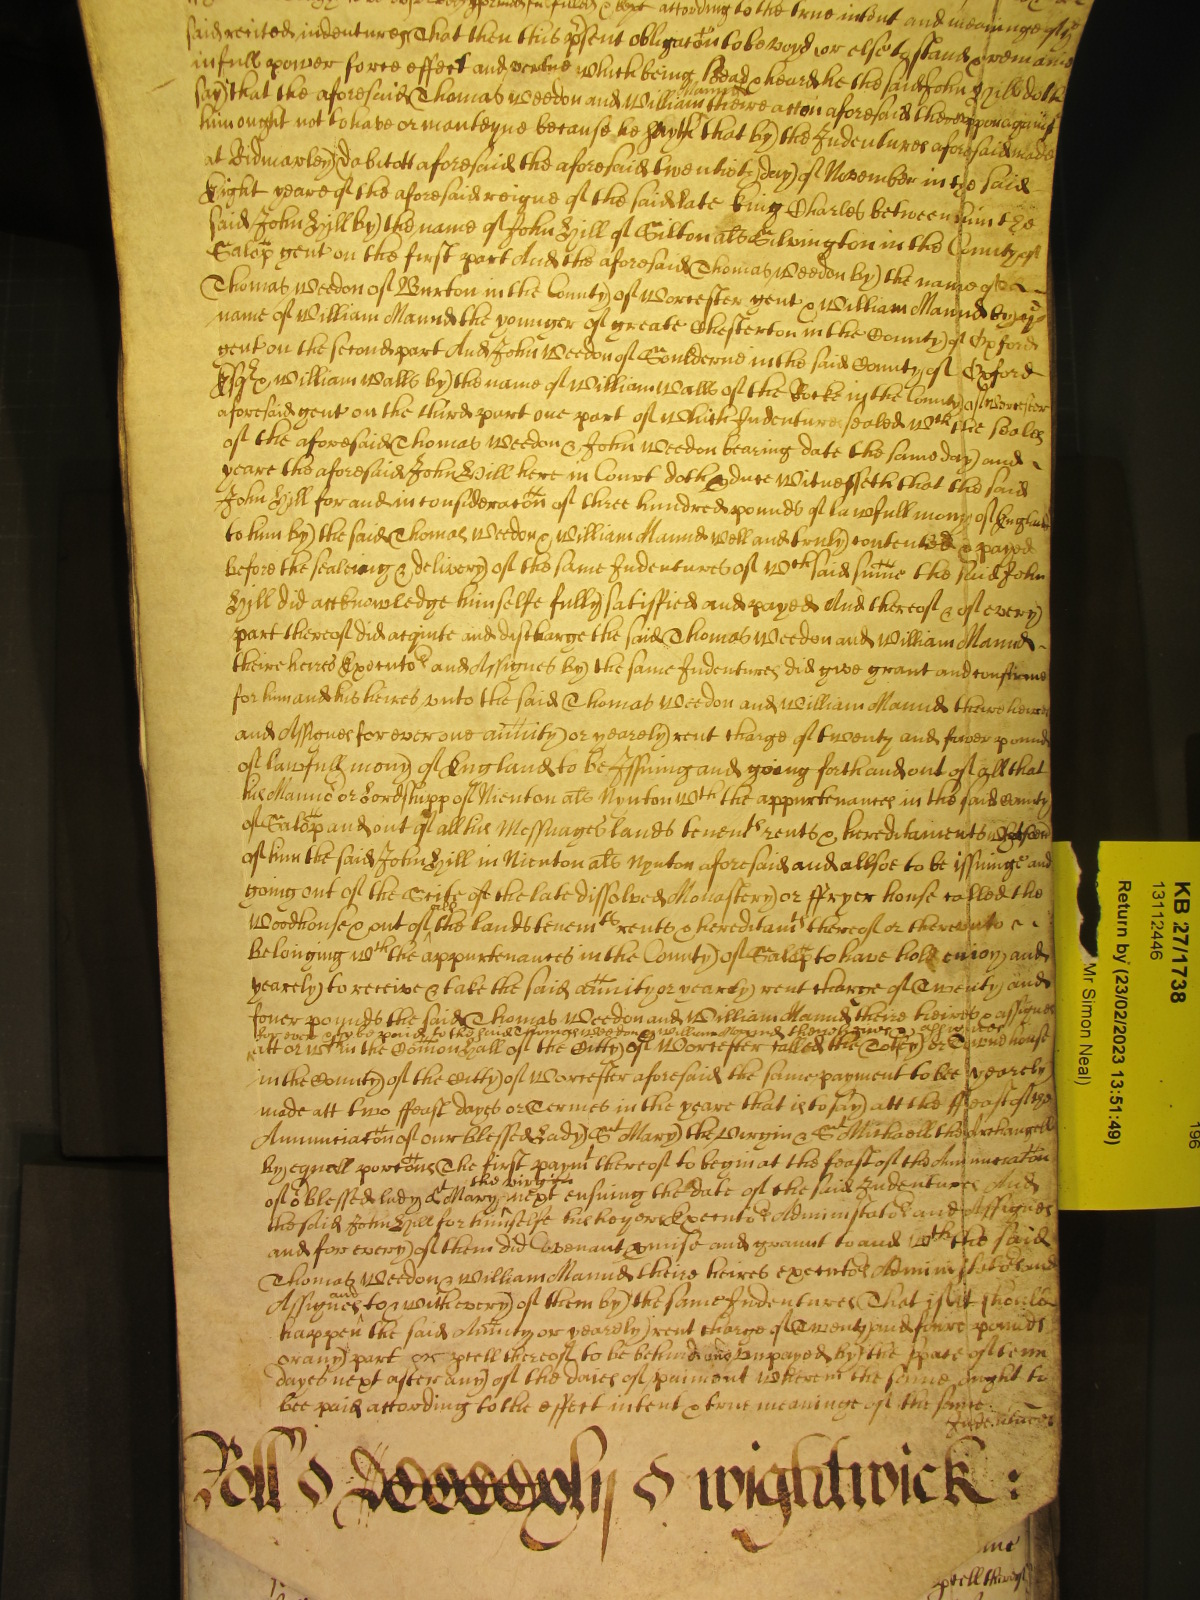 to the true intent and meaninge of the
said recited indentures That then this psent obligatōn to be voyd or else to stand & remaine
in full power force effect and vertue which being Read & heard he the said John Hill doth
say that the aforesaid Thomas Weedon and William Maund theire accōn aforesaid thereuppon against
him ought not to have or manteyne because he sayth that by the Indentures aforesaid made
at Bidmarley Dabitott aforesaid the aforesaid twentieth day of November in the said
Eight yeare of the aforesaid reigne of the said late king Charles betweene him the
said John Hill by the name of John Hill of Silton als Silvington in the County of
Salop gent on the first part And the aforesaid Thomas Weedon by the name of
Thomas Weedon of Burton in the County of Worcester gent & William Maund by ye
name of William Maund the younger of greate Chesterton in the County of Oxford
gent on the second part And John Weedon of Soulderne in the said County of Oxford
Esqr & William Walls by the name of William Walls of the Rocke in the County of Worcester
aforesaid gent on the third part one part of which Indentures sealed wth the seales
of the aforesaid Thomas Weedon & John Weedon bearing date the same day and
yeare the aforesaid John Hill here in Court doth pduce Witnesseth that the said
John Hill for and in consideratōn of three hundred pounds of lawfull mony of England
to him by the said Thomas Weedon & William Maund well and truly contented & payed
before the sealeing & delivery of the same Indentures of wch said sum̄e the said John
Hill did acknowledge himselfe fully satisfied and payed And thereof & of every
part thereof did acquite and discharge the said Thomas Weedon and William Maund
theire heires Executors and Assignes by the same Indentures did give grant and confirme
for him and his heires unto the said Thomas Weedon and William Maund theire heires
and Assignes for ever one an̄uity or yearely rent charge of twenty and fower pounds
of lawfull mony of England to be Issuing and going forth and out of all that
his Mannor or Lordshipp of Nienton als Nynton wth the appurtenances in the said County
of Salop and out of all his Messuages lands tenemts rents & hereditaments
of him the said John Hill in Nienton als Nynton aforesaid and allsoe to be issuinge and
going out of the Scite of the late dissolved Monastery or ffryer house called the
Woodhouse & out of all the lands tenemts rents & hereditamts thereof or thereunto
belonging wth the appurtenances in the County of Salop to have hold enioy and
yearely to receive & take the said an̄uity or yearely rent charge of Twenty and
fower pounds the said Thomas Weedon and William Maund theire heires & assignes
for ever to be paid to the said Thomas Weedon & William Maund theire heires & assignes
att or within the Com̄on hall of the Citty of Worcester called the Tolsy or Towne house
in the County of the Citty of Worcester aforesaid the same payment to bee yearely
made att two ffeast dayes or Termes in the yeare that is to say att the ffeast of the
Annunciatōn of our blessed Lady St Mary the Virgin & St Michaell the Archangell
by equall portōns The first paymt thereof to begin at the feast of the Annunciatōn
of or blessed lady St Mary the virgin next ensuing the date of the said Indentures And
the said John Hill for himselfe his heyors Executors Administrators and Assignes
and for every of them did Covenant pmise and graunt to and wth the said
Thomas Weedon & William Maund theire heires executors Administrators and
Assignes and to & with every of them by the same Indentures That if it should
happen the said An̄uity or yearely rent charge of Twenty and fowre pounds
or any part or pcell thereof to be behind and Unpayed by the space of tenn
dayes next after any of the daies of paiment wherein the same ought to
bee paid according to the effect intent & true meaninge of the same
Indentures
Roll & wightwick :
pcell thereof
KB 27/1738
13112446
Return by (23/02/2023 13:51:49)
Mr Simon Neal)
196